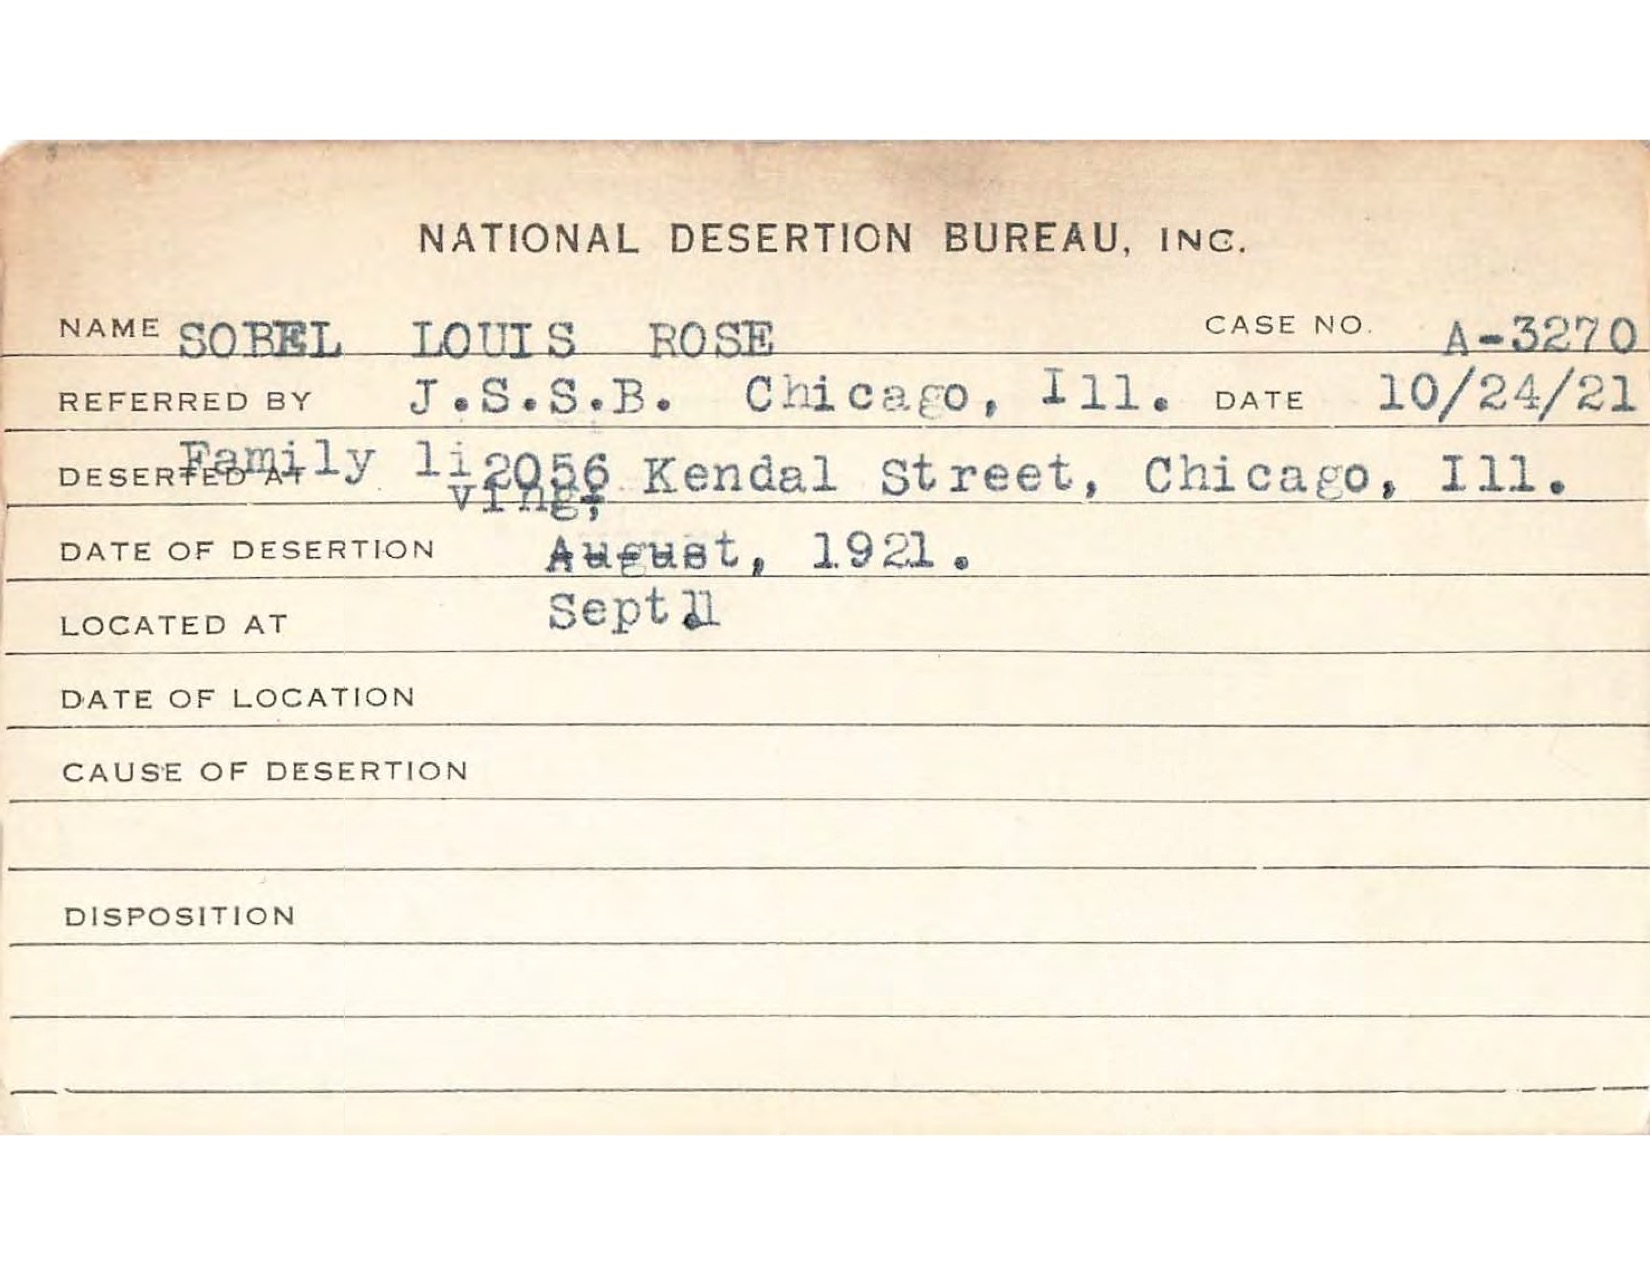 NATIONAL DESERTION BUREAU, INC.
NAME SOBEL LOUIS ROSE CASE NO. A-3270
REFERRED BY J.S.S.B. Chicago, Ill. DATE 10/24/21
DESERTED AT Family living; 2056 Kendal Street, Chicago, Ill.
DATE OF DESERTION August, 1921.
LOCATED AT Sept.
DATE OF LOCATION
CAUSE OF DESERTION
DISPOSITION